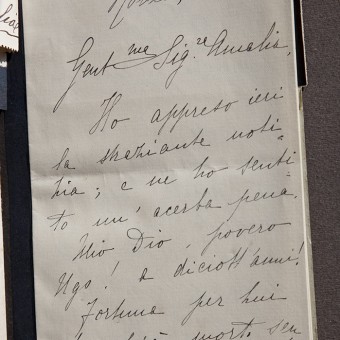 Gent.me Sig.re Amalia,
Ho appreso ieri
la straziante noti=
zia; e ne ho senti=
to un' acerba pena.
Mio Dio, povero
Ugo! a diciott'anni!
Fortuna per lui
morto sen